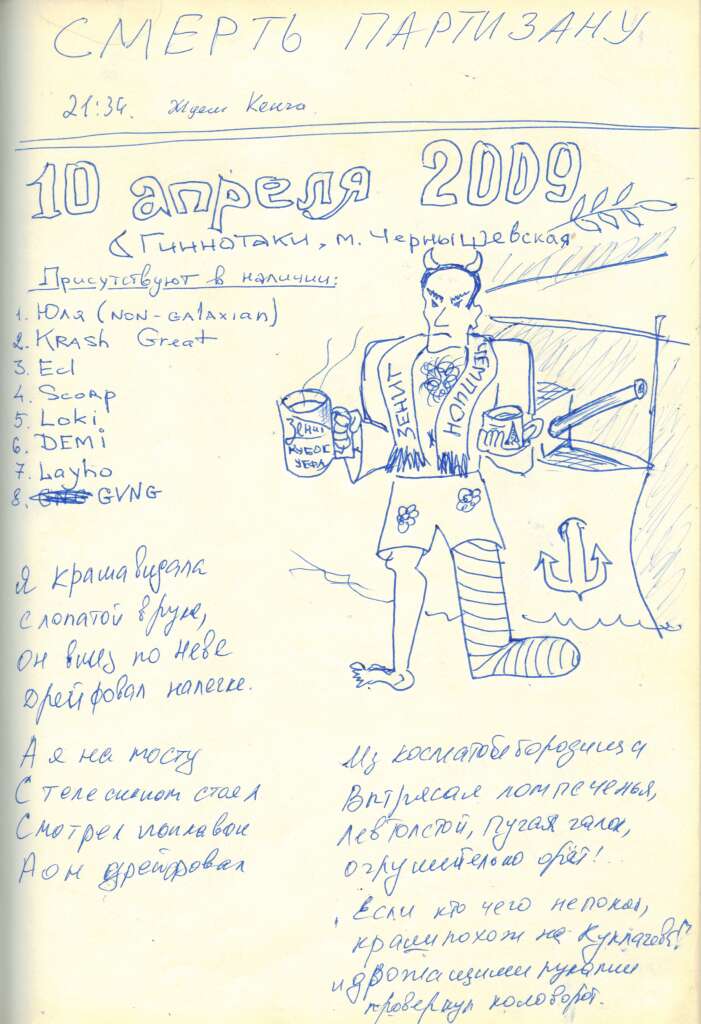 СМЕРТЬ ПАРТИЗАНУ
21:34. Ждем Кенга
10 апреля 2009
Гиннотаки, м. Чернышевская
Присутствуют в наличии:
1. Юля (NON-GALAXIAN)
2. KRASH Great
3. Ed
4. Scorp
5. Loki
6. DEMi
7. Layho
8. GVNG
ЗЕНИТ
ЧЕМПИОН
Зенит
КУБОК
УЕФА
Я краша видала
с лопатой в руке,
он вниз по Неве
дрейфовал налегке.
А я на мосту
С телескопом стоял
Смотрел поплавок
А он дрейфовал
Из косматой бородища
Вытрясая лом печенья,
Лев Толстой, пугая галок,
орёт!
Если кто чего не понял,
краш похож на Куклачёва
и дрожащими руками
провернул коловорот.